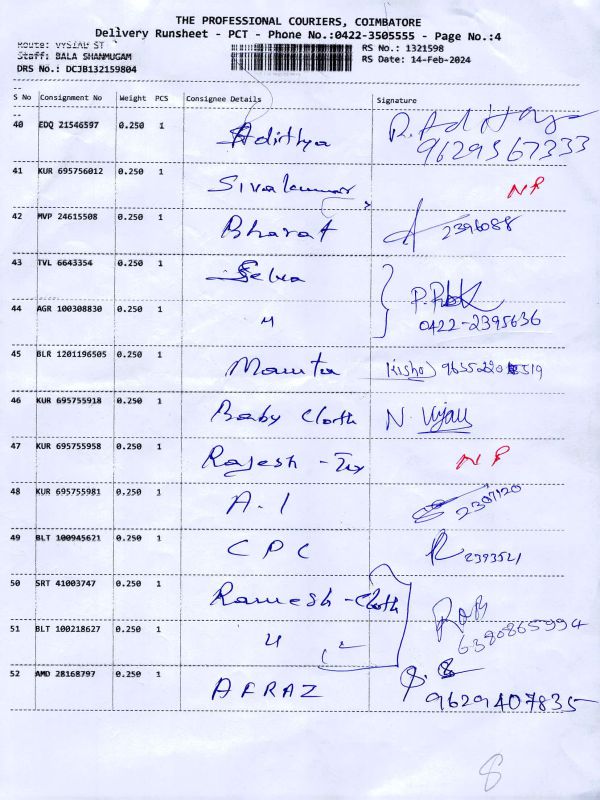 THE PROFESSIONAL COURIERS, COIMBATORE
Delivery Runsheet - PCT - Phone No.:0422-3505555 - Page No.:4
Route: VYSIAL ST RS No.: 1321598
Staff: BALA SHANMUGAM RS Date: 14-Feb-2024
DRS No.: DCJB132159804
S No Consignment No Weight PCS Consignee Details Signature
40 EDQ 21546597 0.250 1 Adithya R. Adithya
9629567333
41 KUR 695756012 0.250 1 Sivakumar NP
42 MVP 24615508 0.250 1 Bharat 2396088
43 TVL 6643354 0.250 1 Selva
44 AGR 100308830 0.250 1 "
0422-2395636
45 BLR 1201196505 0.250 1 Mamta Kisho
46 KUR 695755918 0.250 1 Baby Cloth N. Vijay
47 KUR 695755958 0.250 1 Rajesh - Tex NP
48 KUR 695755981 0.250 1 A. 1 2307120
49 BLT 100945621 0.250 1 C P C R 2393521
50 SRT 41003747 0.250 1 Ramesh - Cloth
51 BLT 100218627 0.250 1 "
6380865994
52 AMD 28168797 0.250 1 AFRAZ
9629407835
8